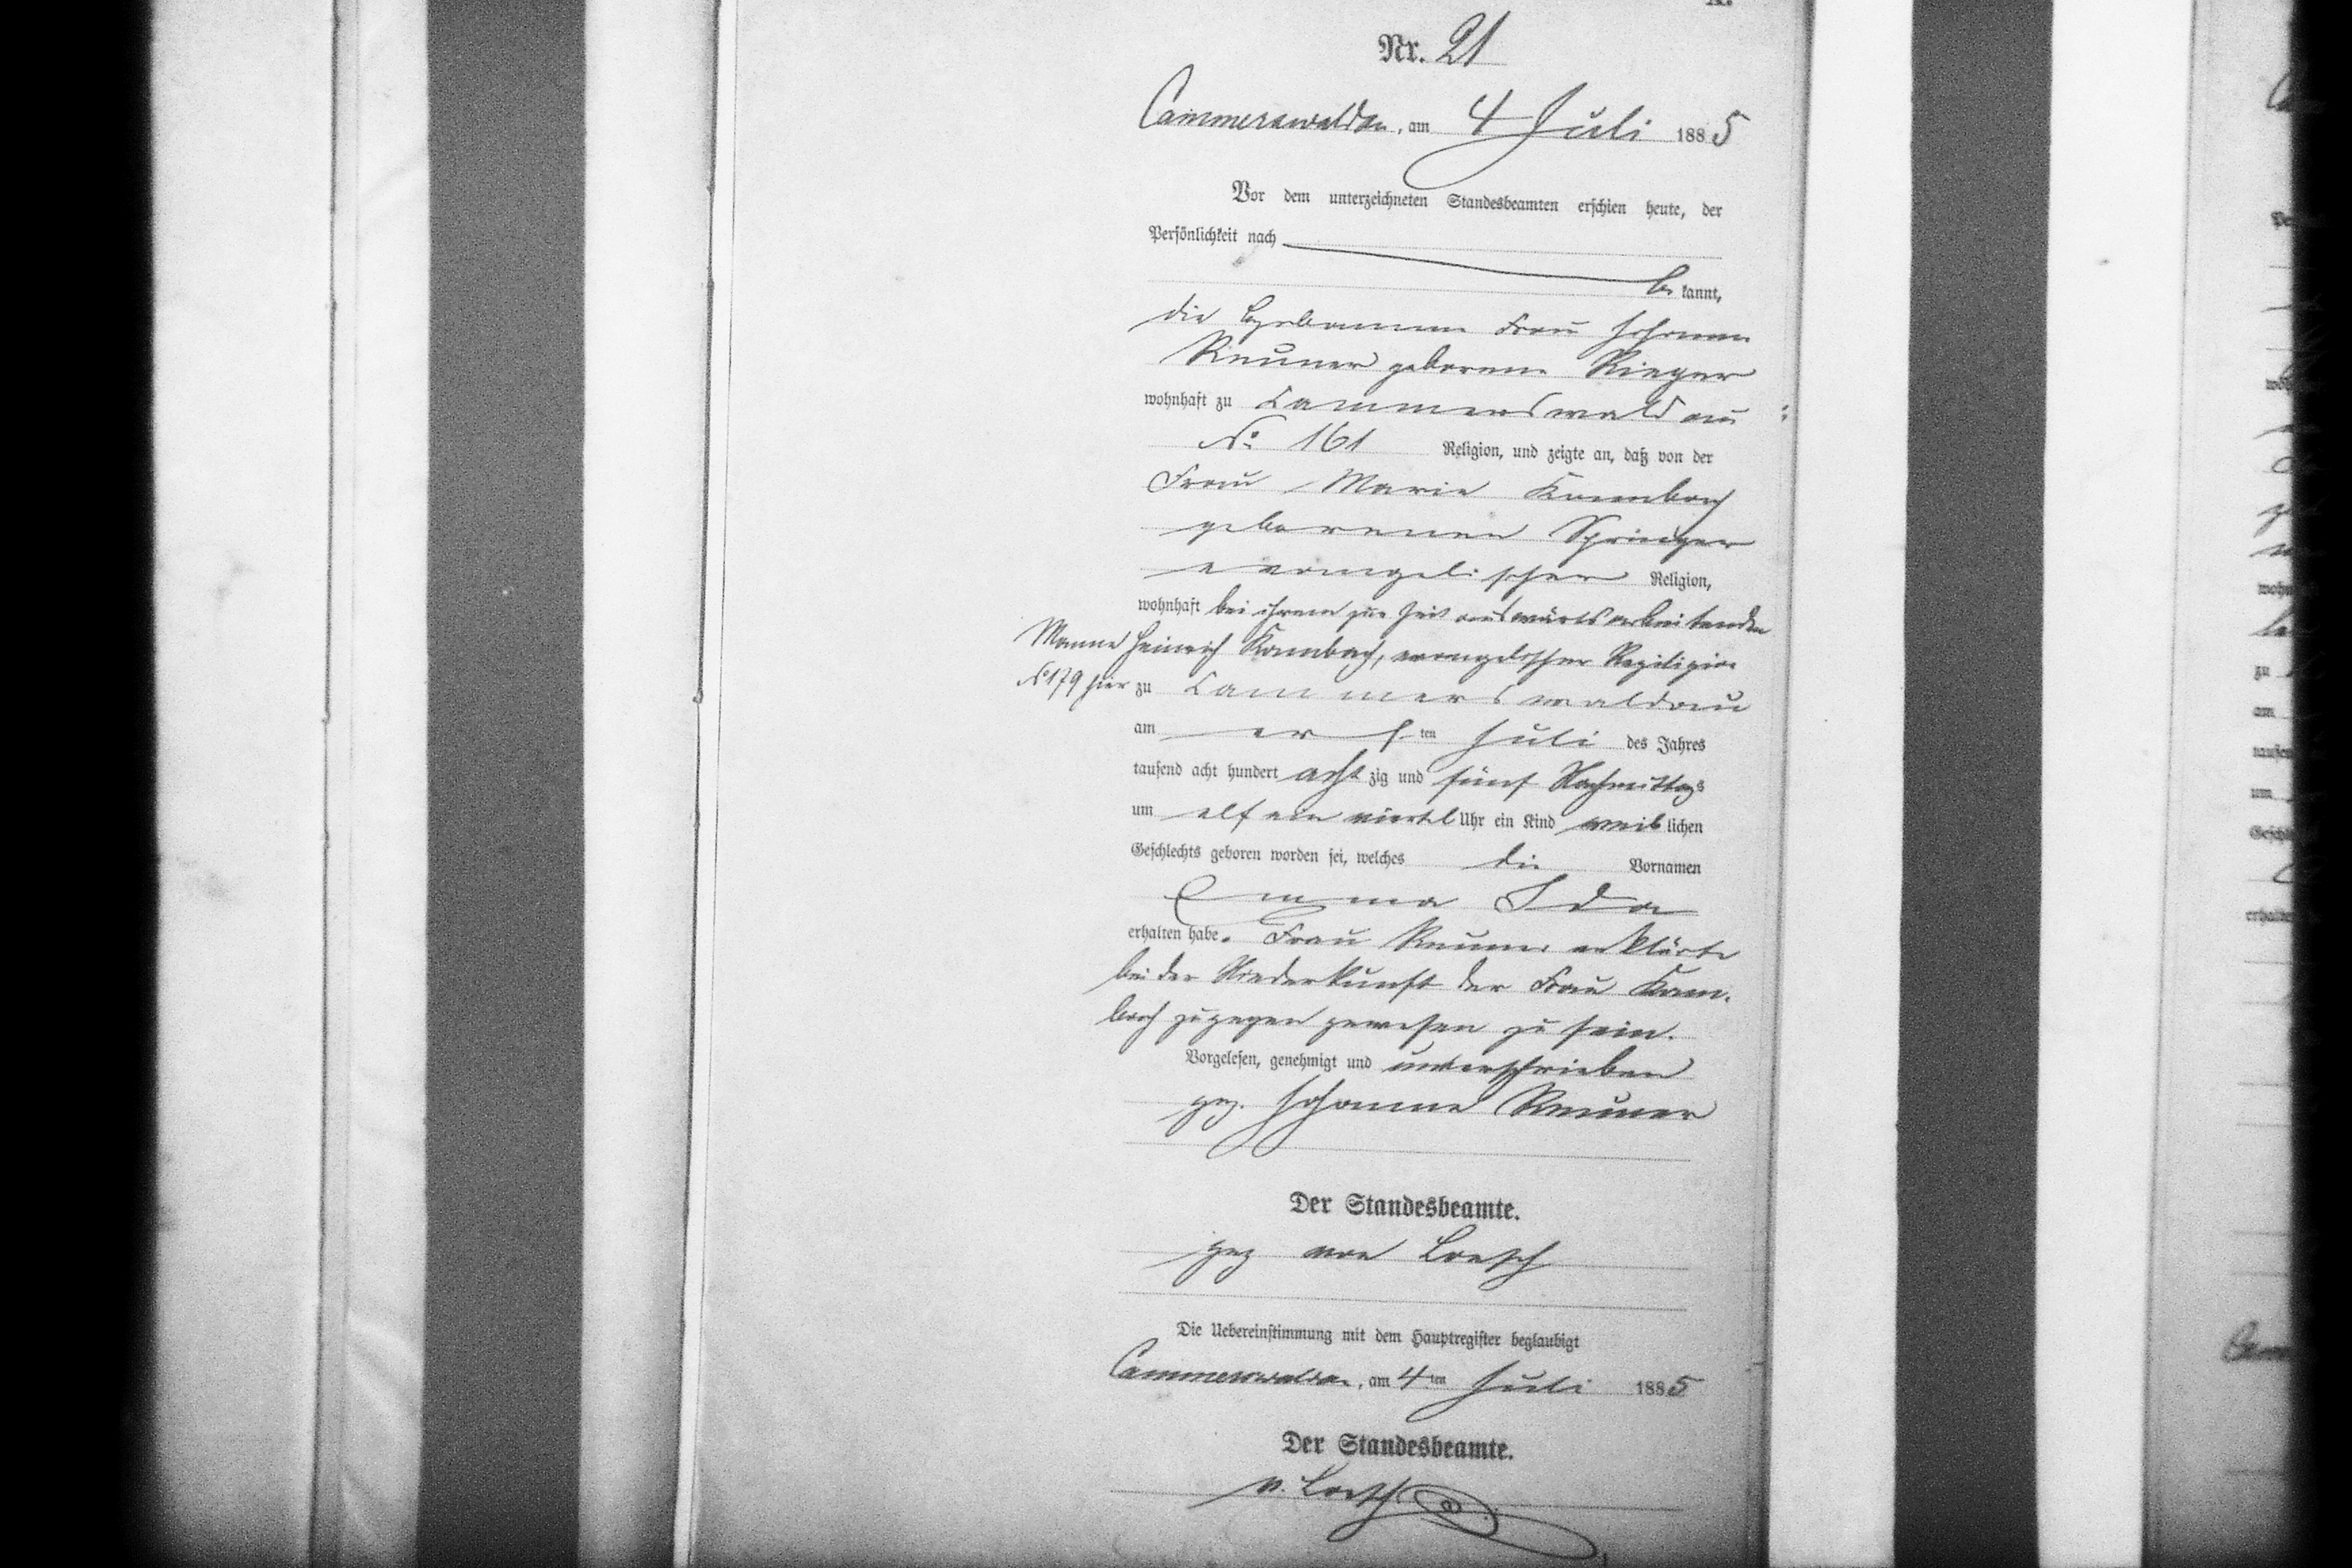 Nr. 21
Cammerswaldau, am 4 Juli 1885
Vor dem unterzeichneten Standesbeamten erschien heute, der
Persönlichkeit nach
be kannt,
die Hebamme Frau Johanne
Reuner geborene Rieger
wohnhaft zu Cammerswaldau
No 161 Religion, und zeigte an, daß von der
Frau Marie Kambach
geborenen Springer
evangelischer Religion,
wohnhaft bei ihrem zur Zeit auswärts arbeitenden
Manne Heinrich Kambach, evangelischer
No 179 hier zu Cammerswaldau
am ersten Juli des Jahres
tausend acht hundert achtzig und fünf Nachmittags
um elf ein viertel Uhr ein Kind weiblichen
Geschlechts geboren worden sei, welches die Vornamen
Emma Ida
erhalten habe. Frau Reuner erklärte
bei der Niederkunft der Frau Kam-
bach zugegen gewesen zu sein.
Vorgelesen, genehmigt und unterschrieben
gez. Johanne Reuner
Der Standesbeamte.
gez von Loesch
Die Uebereinstimmung mit dem Hauptregister beglaubigt
Cammerswaldau, am 4ten Juli 1885
Der Standesbeamte.
v. Loesch